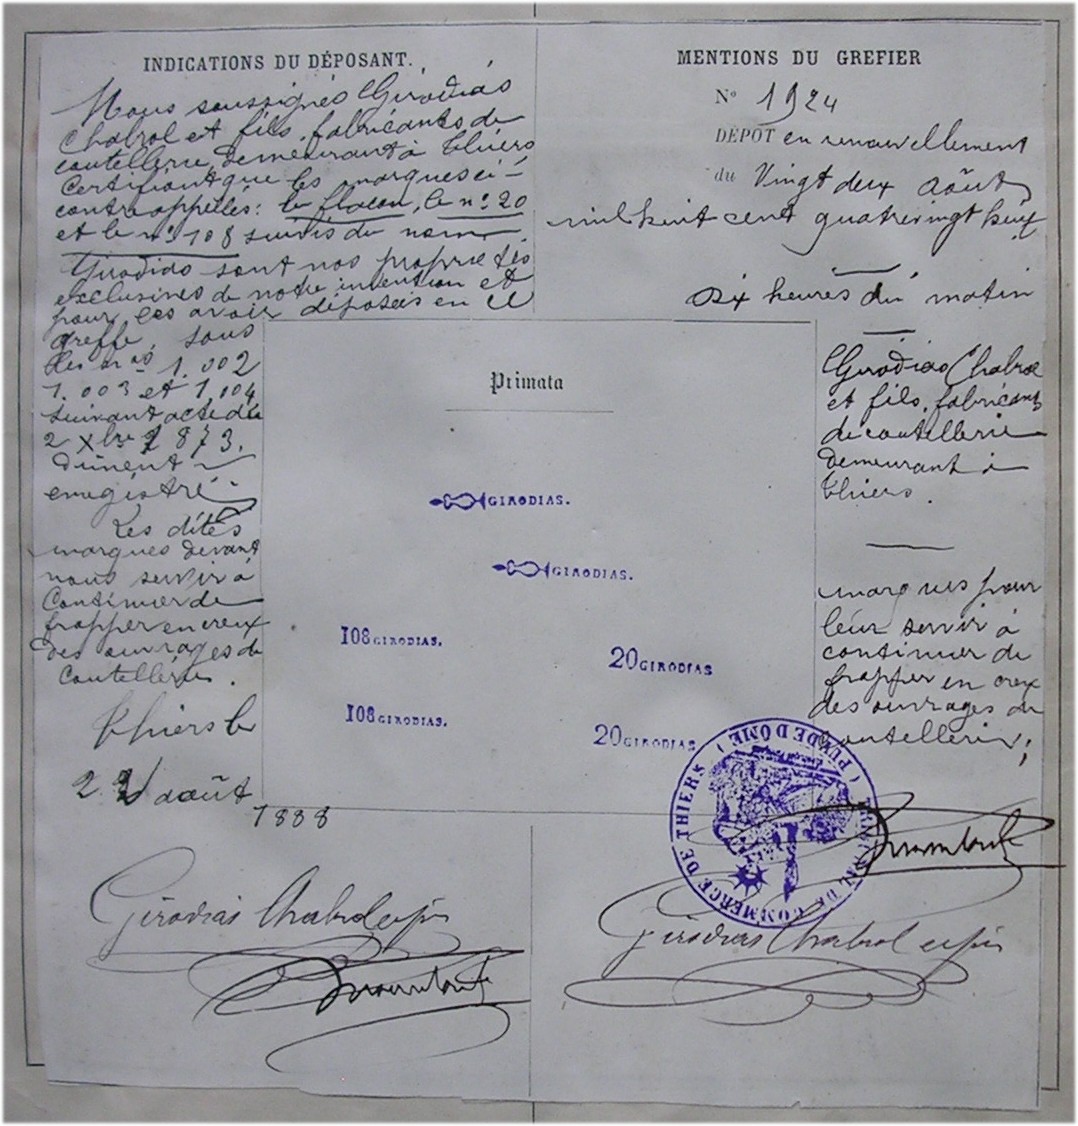 INDICATIONS DU DÉPOSANT.
Nous soussignés Girodias
Chabrol et fils, fabricants de
coutellerie demeurant à Thiers
Certifiont que les marques ci-
contre appellés: le flacon, le n° 20
et le n° 108 suivis du nom
Girodias sont nos propriétés
exclusives de notre invention et
pour les avoir déposées en ce
greffe, sous
les nos 1.002
1.003 et 1,004
suivant acte du
2 Xbre 1873.
dûment
enregistré.
Les dites
marques devant
nous servir à
Continuer de
frapper en creux
des ouvrages de
Coutellerie.
Thiers le
22 août
1888
Girodias Chabrol et fils
MENTIONS DU GREFIER
N° 1924
DÉPÔT en renouvellement
du Vingt deux août
mil huit cent quatre vingt huit
dix heures du matin
Girodias Chabrol
et fils, fabricants
de coutellerie
demeurant à
Thiers.
marques pour
leur servir à
continuer de
frapper en creux
des ouvrages de
coutellerie;
Girodias Chabrol et fils
Primata
GIRODIAS.
GIRODIAS.
108 GIRODIAS.
20 GIRODIAS
108 GIRODIAS.
20 GIRODIAS
TRIBUNAL DE COMMERCE DE THIERS (PUY DE DÔME)